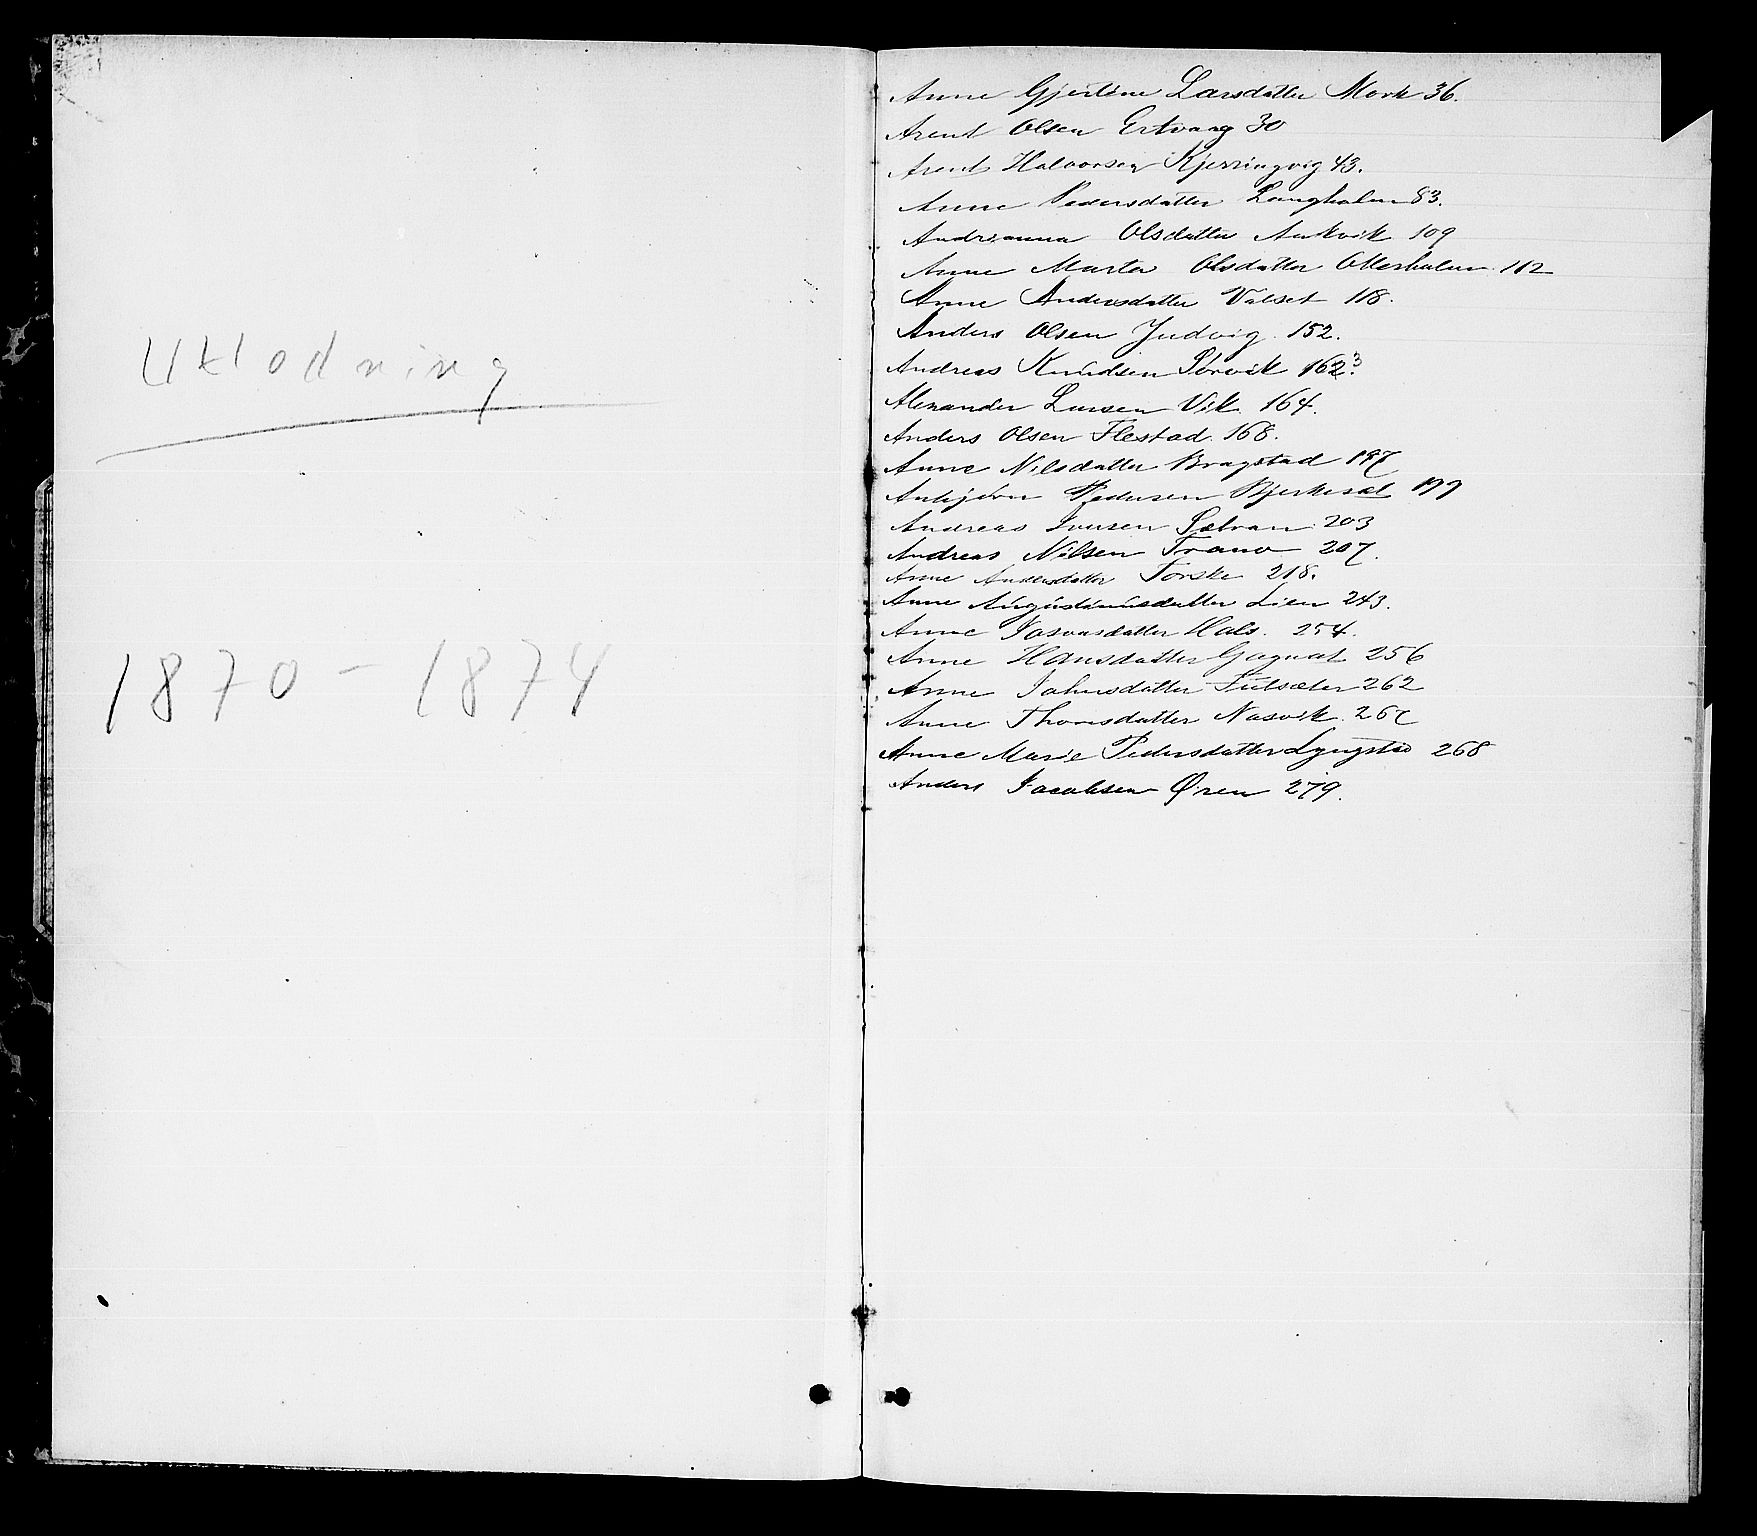 Utlodning
1870 - 1874
Anne Gjertine Larsdatter Mork 36.
Arent Olsen Ertvaag 30
Arent Halvorsen Kjerringvig 43.
Anne Pedersdatter Langholm 83.
Andrianna Olsdatter Aukvik 109
Anne Marta Olsdatter Otterholm 112
Anne Andersdatter Valset 118.
Anders Olsen Judvig. 152.
Andreas Knudsen Storvik 162.3
Alexander Larsen Vik. 164.
Anders Olsen Flestad. 168.
Anne Nilsdatter Bragstad 197
Pedersen 199
Andreas Iversen 203
Andreas Nilsen 207.
Anne Andersdatter Torske 218.
Anne Augustinusdatter Lien 243.
Anne Hals. 254.
Anne Hansdatter Gagnat 256
Anne Johnsdatter 262
Anne Thomsdatter Nasvik. 267
Anne Marie Pedersdatter Lyngstad 268
Anders Jacobsen Øren 279.